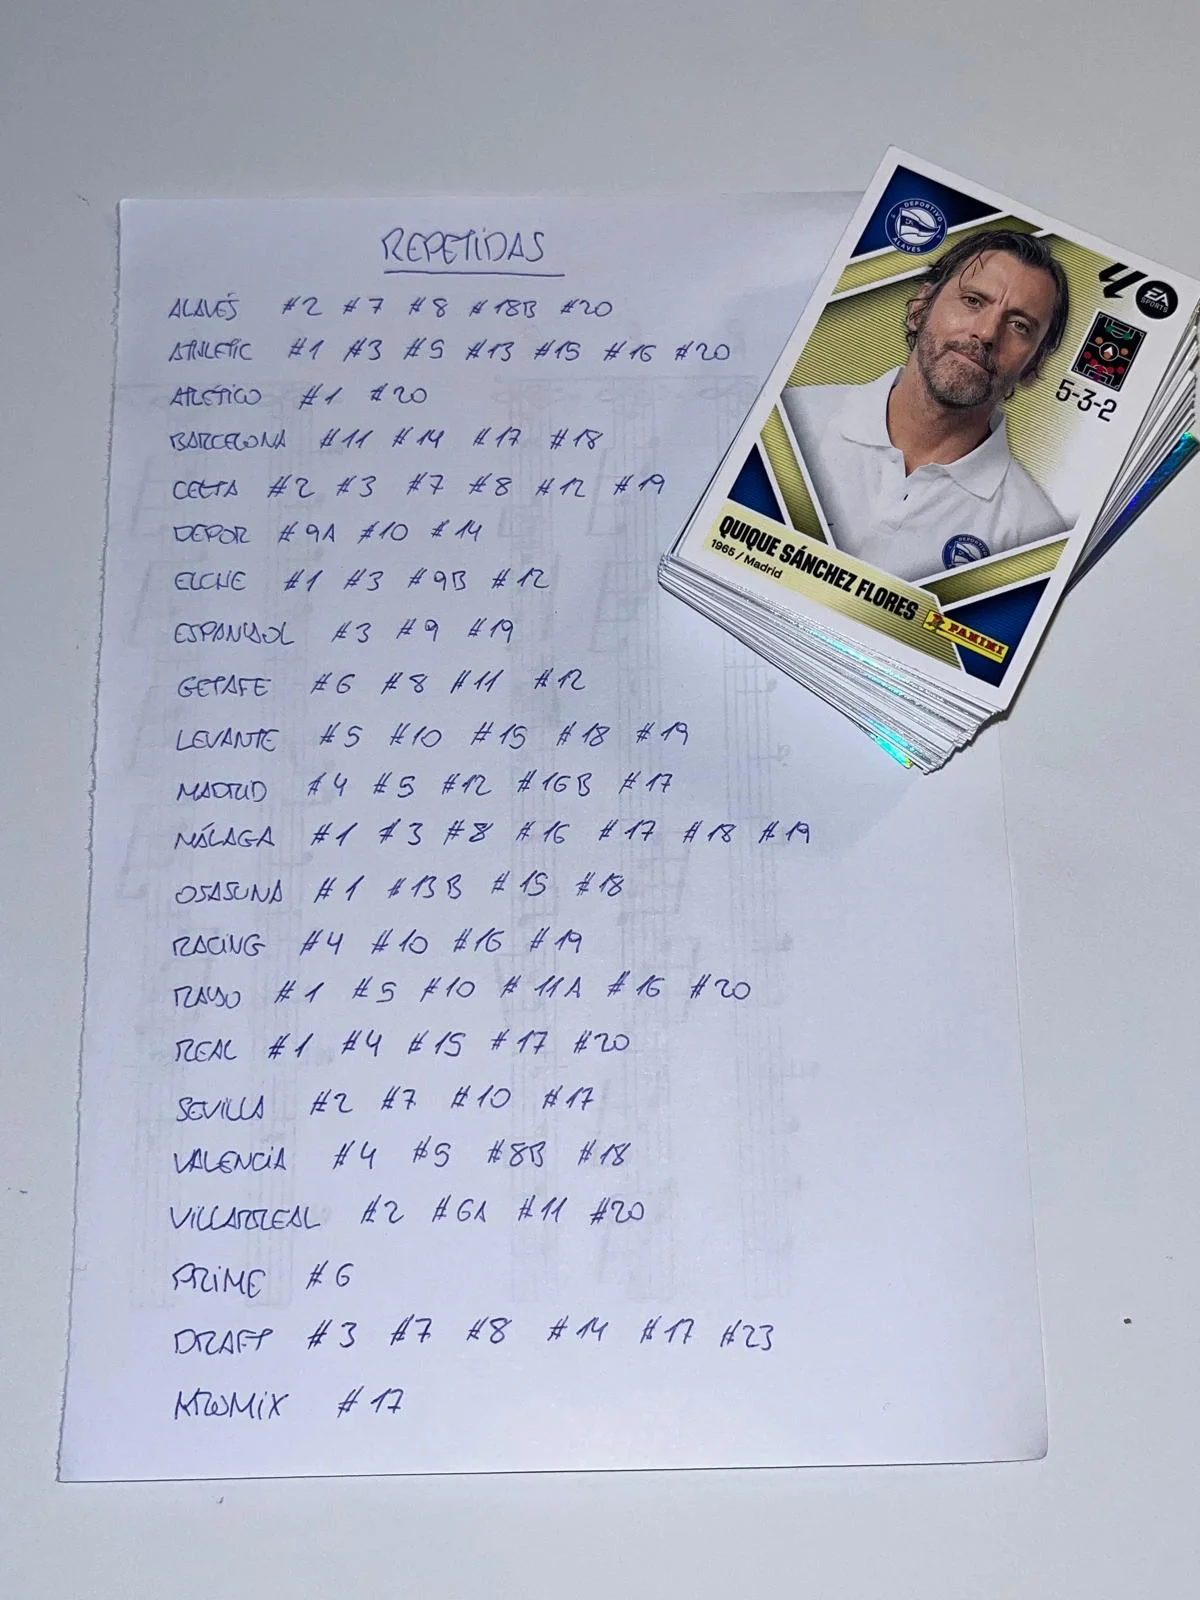 REPETIDAS
ALAVÉS #2 #7 #8 #18B #20
ATHLETIC #1 #3 #5 #13 #15 #16 #20
ATLÉTICO #1 #20
BARCELONA #11 #14 #17 #18
CELTA #2 #3 #7 #8 #12 #19
DEPOR #9A #10 #14
ELCHE #1 #3 #9B #12
ESPANYOL #3 #9 #19
GETAFE #6 #8 #11 #12
LEVANTE #5 #10 #15 #18 #19
MADRID #4 #5 #12 #16B #17
MÁLAGA #1 #3 #8 #16 #17 #18 #19
OSASUNA #1 #13B #15 #18
RACING #4 #10 #16 #19
RAYO #1 #5 #10 #11A #16 #20
REAL #1 #4 #15 #17 #20
SEVILLA #2 #7 #10 #17
VALENCIA #4 #5 #8B #18
VILLARREAL #2 #6A #11 #20
PRIME #6
DRAFT #3 #7 #8 #14 #17 #23
#17
DEPORTIVO
ALAVÉS
EA
SPORTS
5-3-2
QUIQUE SÁNCHEZ FLORES
1965 / Madrid
PANINI